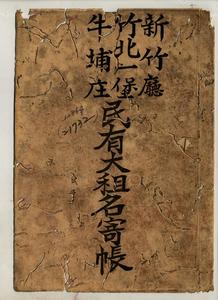 新竹廳
竹北一堡
牛埔庄
民有大租名寄帳
21732